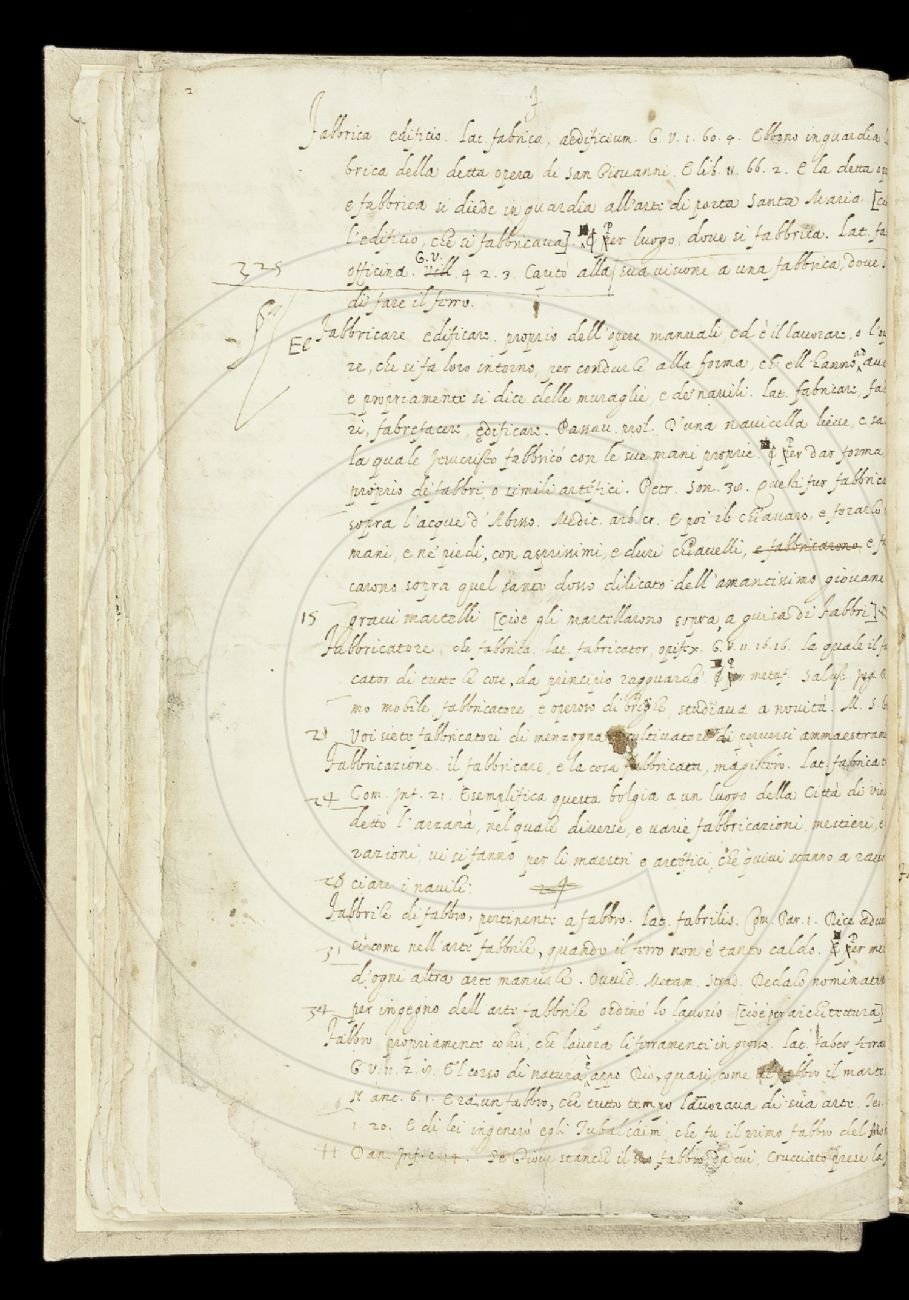 2
F
Fabbrica edificio. Lat. fabrica, aedificium. G. V. 1. 60. 4. Ebbono in guardia
brica della detta opera di San Giovanni. E lib. 11. 66. 2. E la detta
e fabbrica si diede in guardia all'arte di porta Santa Maria.
l'edificio, che si fabbricava]. ¶ Per luogo, dove si fabbrica. Lat.
325 officina. G. V. 4. 2. 3. Capitò alla sua visione a una fabbrica, dove
di fare il ferro.
EC Fabbricare edificare. proprio dell'opere manuali, ed è il lavorare, o
re, che si fa loro intorno, per condurle alla forma, ch'ell'hanno ad
e propriamente si dice delle muraglie, e de' navili. Lat. fabricare,
ri, fabrefacere, ędificare. Passav. prol. D'una navicella lieve, e
la quale Jesucristo fabbricò con le sue mani proprie. ¶ Per dar forma,
proprio de' fabbri, o simili artéfici. Petr. Son. 38.
sopra l'acque d'Abisso. Medit. arb. cr. E poi il chiavaro, e foraro
mani, e ne' piedi, con asprissimi, e duri chiavelli, e fabbricarono, e
carono sopra quel santo dosso dilicato dell'amantissimo giovane
15 gravi martelli [cioè gli martellarono sopra, a guisa di fabbri]
Fabbricatore, che fabbrica. Lat. fabricator, opifex. G. V. 11. 16. 16. La quale il
cator di tutte le cose, da principio ragguardò. ¶ Per metaf. Salust. Jug.
mo mobile, fabbricatore, e operoso di brighe studiava a novità. M.
20 Voi siete fabbricatori di menzogna, cultivatori di perversi
Fabbricazione. il fabbricare, e la cosa fabbricata, magistero. Lat.
24 Com. Inf. 21. Esemplifica questa bolgia a un luogo della Città di
detto l'arzanà, nel quale diverse, e varie fabbricazioni, mestieri, e
razioni, vi si fanno per li maestri e artéfici, che quivi stanno a
28 ciare i navili.
Fabbrile di fabbro, pertinente a fabbro. Lat. fabrilis. Com. Par. 1. Dice
31 sì come nell'arte fabbrile, quando il ferro non è tanto caldo. ¶ Per
d'ogni altra arte manuale. Ovvid. Metam. Strad. Dedalo
34 per ingegno dell'arte fabbrile ordinò lo lavorìo [cioè per architettura]
Fabbro, propriamente colui, che lavora li ferramenti in grosso. Lat. faber
G. V. 11. 2. 18. E'l corso di natura è appo Dio, quasi come al fabbro il
N. ant. 6. 1. Era un fabbro, che tutto tempo lavorava di sua arte.
1. 20. E di lei ingenerò egli Tubalcaim, che fu il primo fabbro del
41 Dan. Inf. c. 14. Se Giove stanchi il suo fabbro, da cui, Crucciato prese la